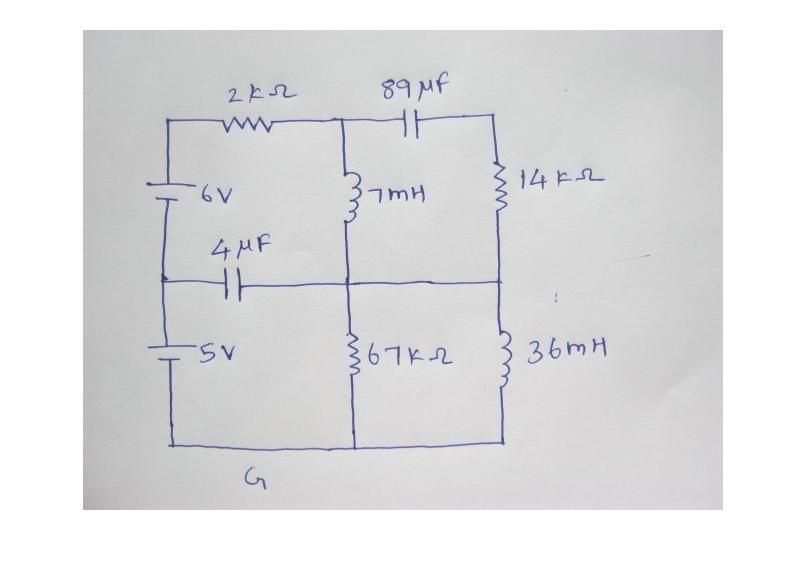 2KΩ
89μF
6V
7mH
14KΩ
4μF
5V
67KΩ
36mH
G